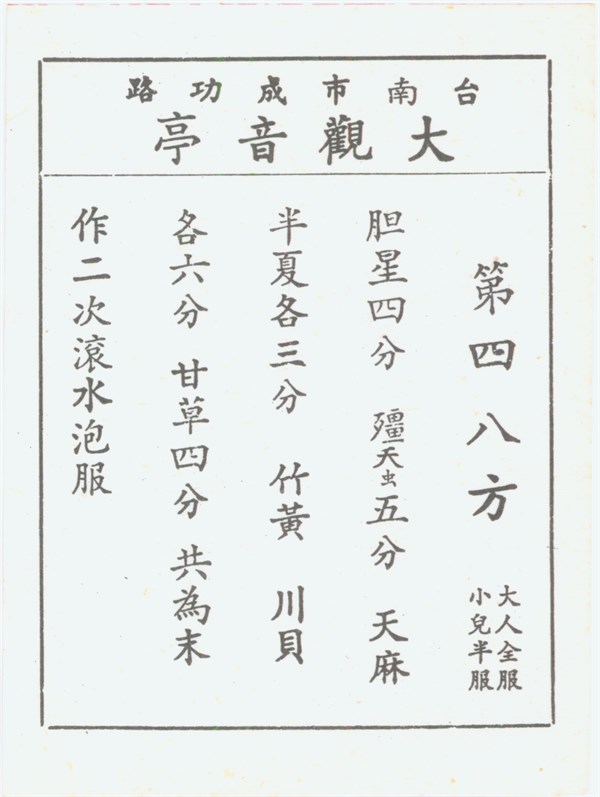 台南市成功路
大觀音亭
第四八方
大人全服
小兒半服
胆星四分 殭蚕五分 天麻
半夏各三分 竹黃 川貝
各六分 甘草四分 共為末
作二次滾水泡服